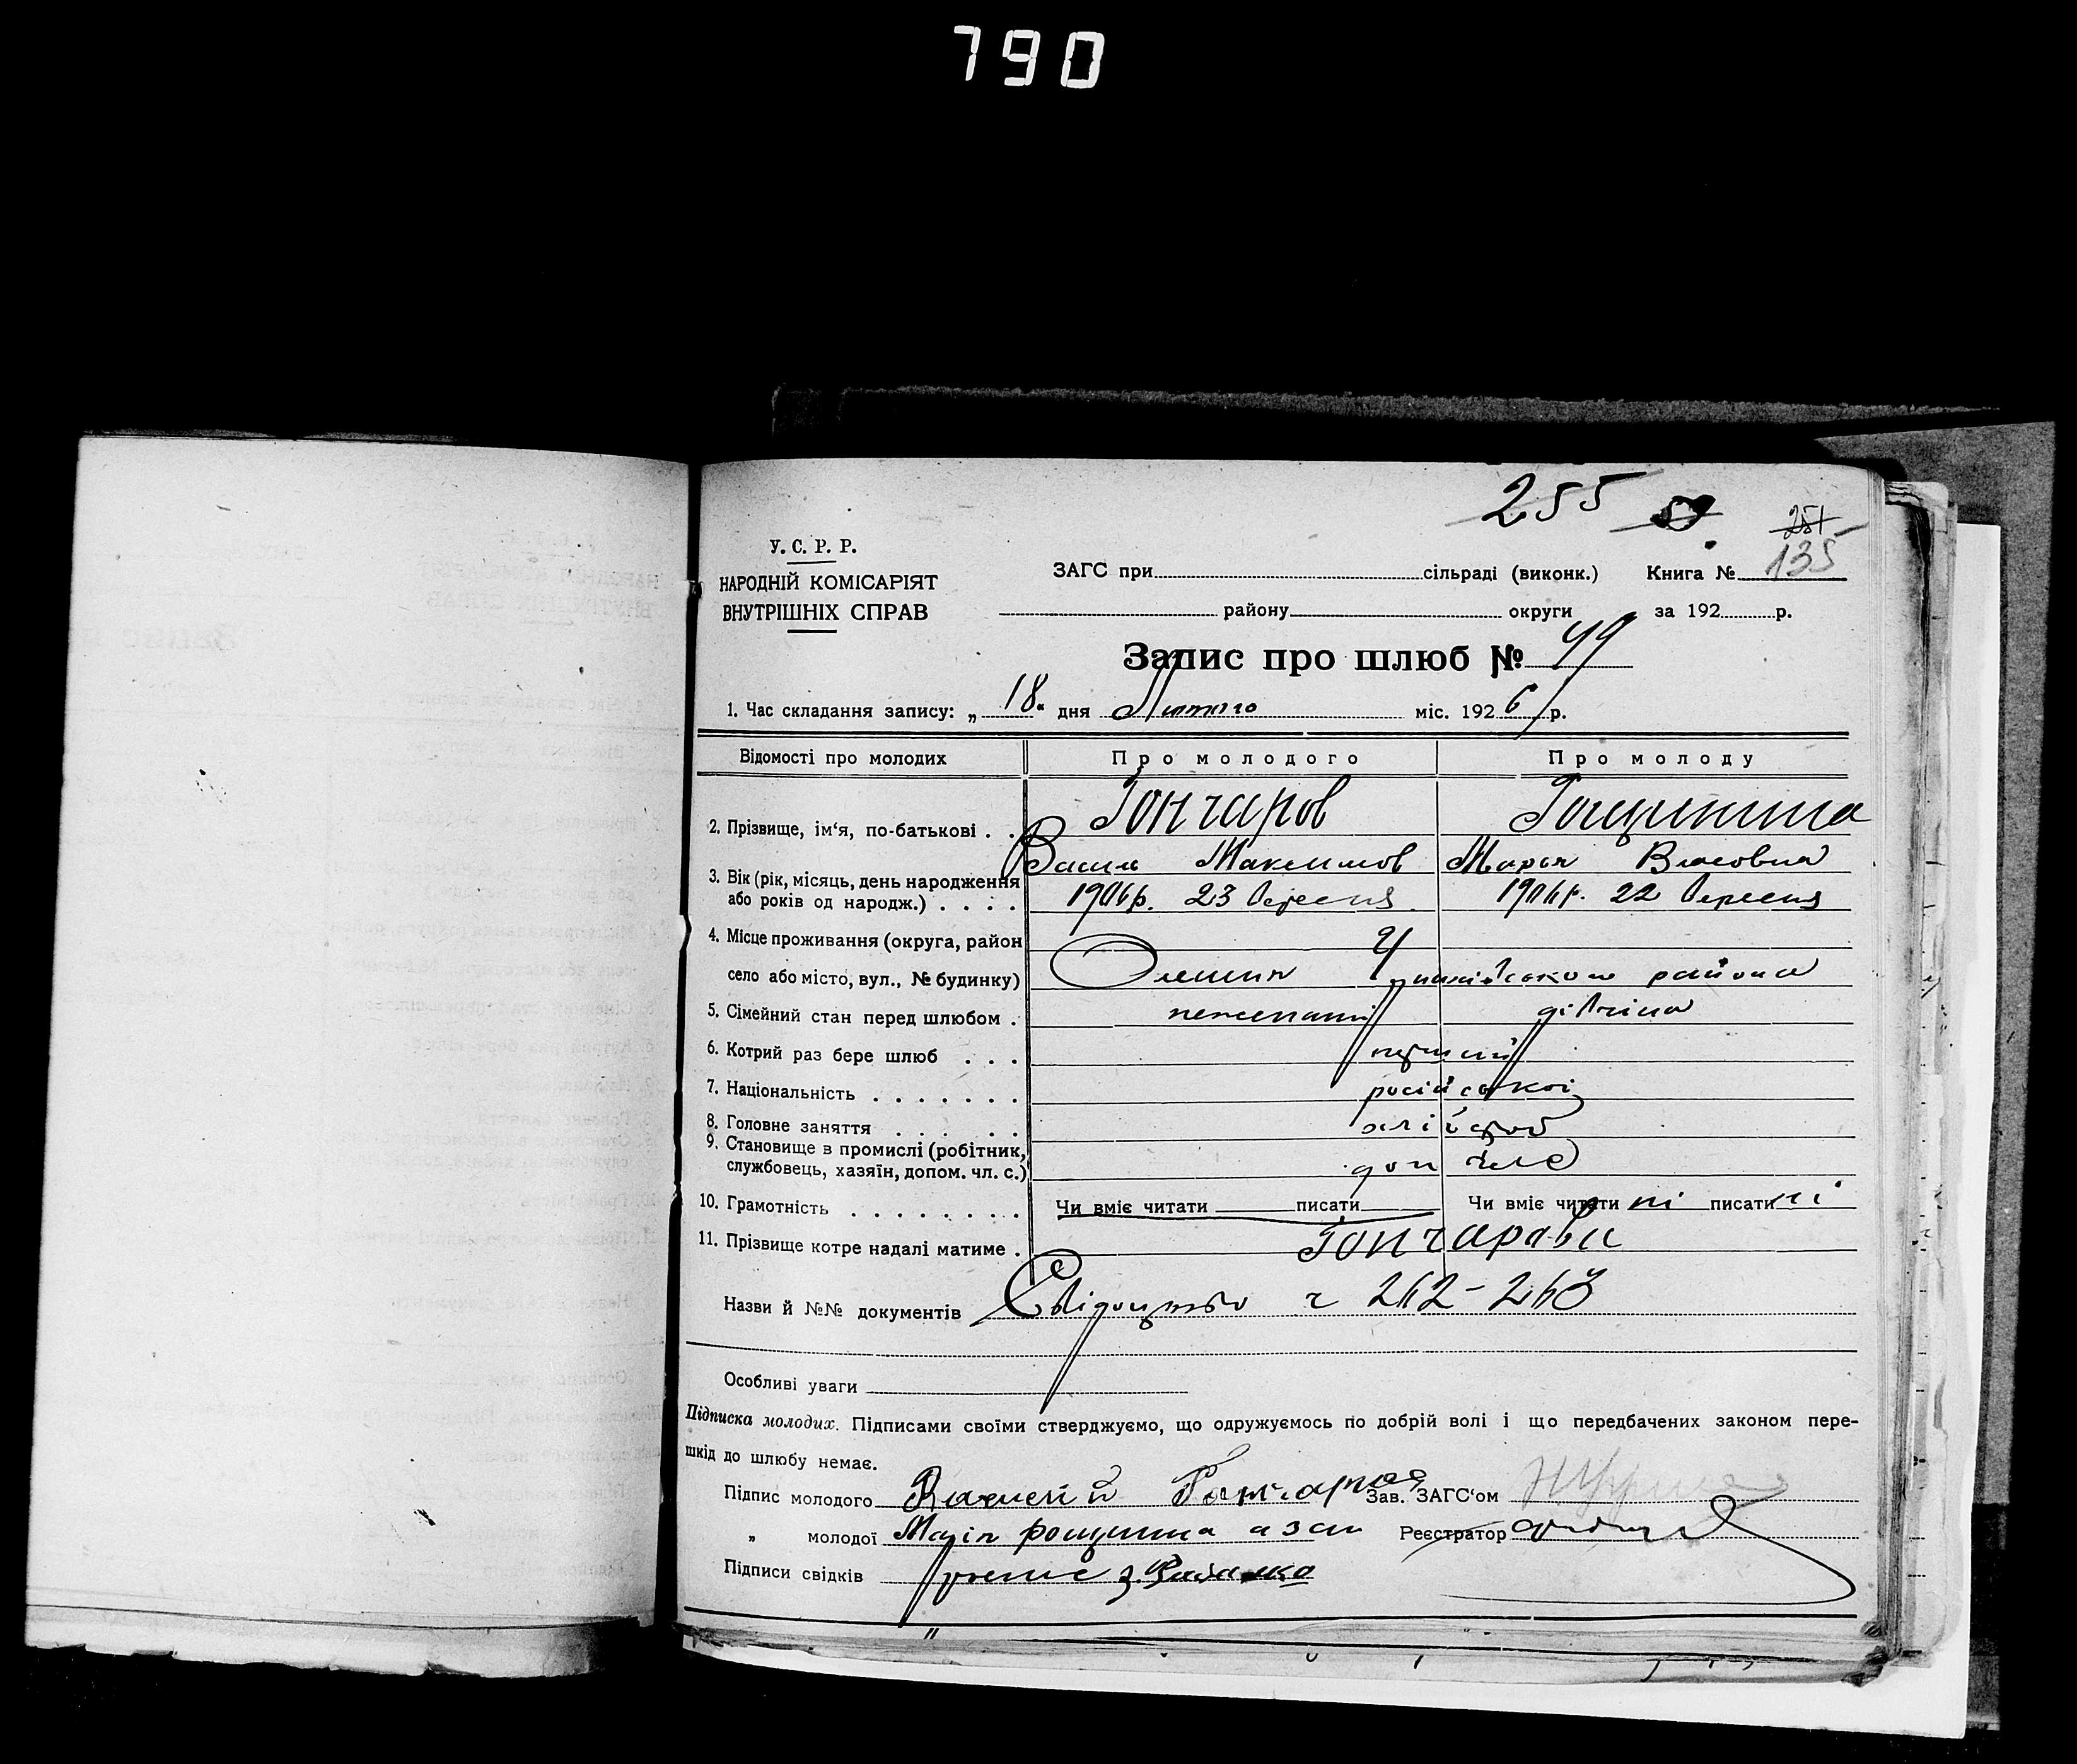 790
255
251
135
У. С. Р. Р.
НАРОДНІЙ КОМІСАРІЯТ
ВНУТРІШНІХ СПРАВ
ЗАГС при сільраді (виконк.) Книга №
району округи за 192 р.
Запис про шлюб № 49
1. Час складання запису: „ 18 " дня Лютого міс. 1926 р.
Відомості про молодих Про молодого Про молоду
Гончаров
2. Прізвище, ім'я, по-батькові . .
Василь Максимов Марья Власовна
3. Вік (рік, місяць, день народження
або років од народж.) . . . . 1906 р. 23 Вересня 1906 р. 22 Вересня
4. Місце проживання (округа, район
село або місто, вул., № будинку) района
5. Сімейний стан перед шлюбом . нежонатий дівчина
6. Котрий раз бере шлюб . . . перший
7. Національність . . . . . . . російської
8. Головне заняття . . . . . . хлібороб
9. Становище в промислі (робітник,
службовець, хазяїн, допом. чл. с.) доп
10. Грамотність . . . . . . . . Чи вміє читати писати Чи вміє читати ні писати ні
11. Прізвище котре надалі матиме . Гончарови
Назви й №№ документів Свідоцтво ч 262-263
Особливі уваги
Підписка молодих. Підписами своїми стверджуємо, що одружуємось по добрій волі і що передбачених законом пере-
шкід до шлюбу немає.
Підпис молодого Зав. ЗАГС'ом
„ молодої Реєстратор
Підписи свідків